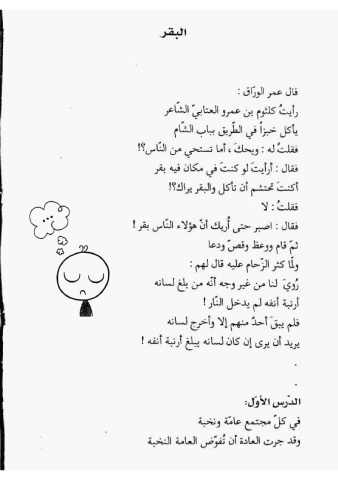 البقر
قال عمر الورّاق :
رأيتُ كلثوم بن عمرو العتابيّ الشّاعر
يأكل خبزاً في الطّريق بباب الشّام
فقلتُ له : ويحكَ ، أما تستحي من النّاس؟!
فقال : أرأيتَ لو كنتَ في مكان فيه بقر
أكنتَ تحتشم أن تأكل والبقر يراك؟!
فقلتُ : لا
فقال : اصبر حتى أُريك أنّ هؤلاء النّاس بقر !
ثمّ قام ووعظ وقصّ ودعا
ولمّا كثر الزّحام عليه قال لهم :
رُويَ لنا من غير وجه أنّه من بلغ لسانه
أرنبة أنفه لم يدخل النّار !
فلم يبقَ أحدٌ منهم إلا وأخرج لسانه
يريد أن يرى إن كان لسانه يبلغ أرنبة أنفه !
.
.
الدّرس الأوّل:
في كلّ مجتمع عامّة ونخبة
وقد جرت العادة أن تُفوّض العامة النخبة